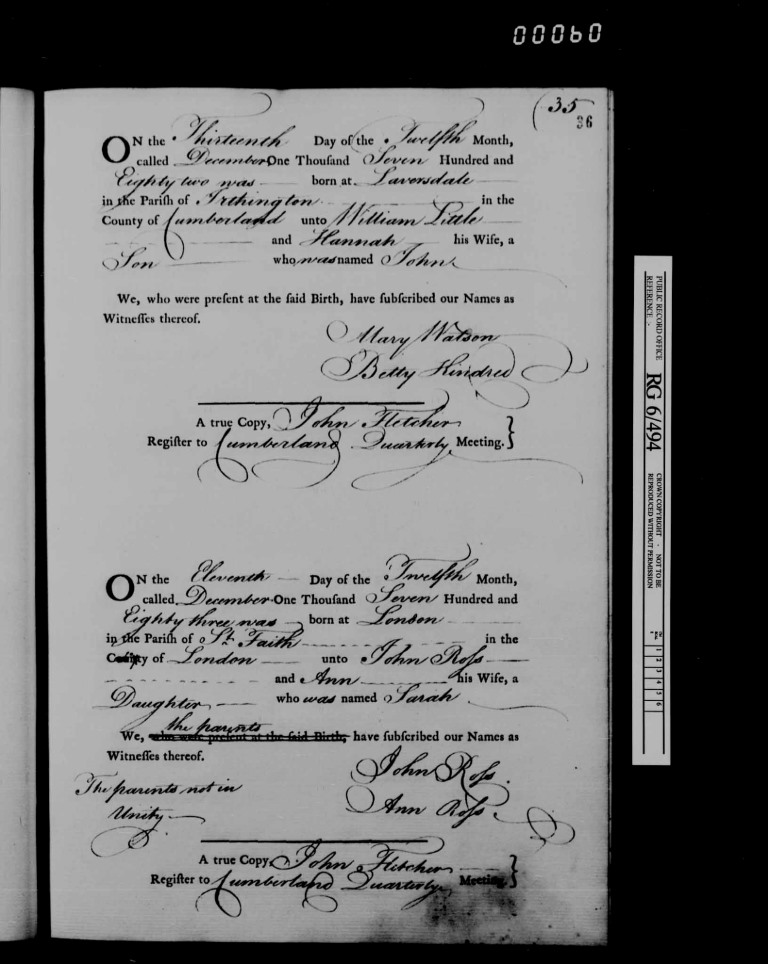 00060
35
36
ON the Thirteenth Day of the Twelfth Month,
called December One Thouſand Seven Hundred and
Eighty two was born at Laversdale
in the Pariſh of Irthington in the
County of Cumberland unto William Little
and Hannah his Wife, a
Son who was named John.
We, who were preſent at the ſaid Birth, have ſubſcribed our Names as
Witneſſes thereof.
Mary Watson
Betty Hindred
A true Copy, John Fletcher
Regiſter to Cumberland Quarterly Meeting.}
ON the Eleventh Day of the Twelfth Month,
called December One Thouſand Seven Hundred and
Eighty three was born at London
in the Pariſh of St. Faith in the
City of London unto John Roſs
and Ann his Wife, a
Daughter who was named Sarah
the parents
We, who were preſent at the ſaid Birth, have ſubſcribed our Names as
Witneſſes thereof.
John Roſs.
The parents not in
Ann Roſs.
Unity
A true Copy, John Fletcher
Regiſter to Cumberland Quarterly Meeting}
PUBLIC RECORD OFFICE
REFERENCE :-
RG 6/494
CROWN COPYRIGHT - NOT TO BE
REPRODUCED WITHOUT PERMISSION
1 2 3 4 5 6